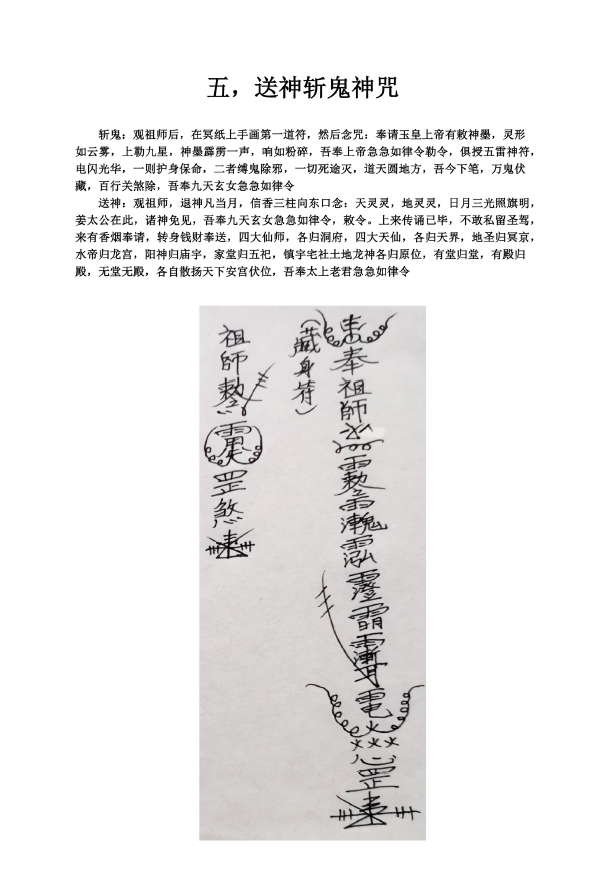 五，送神斩鬼神咒
斩鬼：观祖师后，在冥纸上手画第一道符，然后念咒：奉请玉皇上帝有敕神墨，灵形
如云雾，上勒九星，神墨霹雳一声，响如粉碎，吾奉上帝急急如律令勒令，俱授五雷神符，
电闪光华，一则护身保命，二者缚鬼除邪，一切死途灭，道天圆地方，吾今下笔，万鬼伏
藏，百行关煞除，吾奉九天玄女急急如律令
送神：观祖师，退神凡当月，信香三柱向东口念：天灵灵，地灵灵，日月三光照旗明，
姜太公在此，诸神免见，吾奉九天玄女急急如律令，敕令。上来传诵已毕，不敢私留圣驾，
来有香烟奉请，转身钱财奉送，四大仙师，各归洞府，四大天仙，各归天界，地圣归冥京，
水帝归龙宫，阳神归庙宇，家堂归五祀，镇宇宅社土地龙神各归原位，有堂归堂，有殿归
殿，无堂无殿，各自散扬天下安宫伏位，吾奉太上老君急急如律令
奉祖師
電
火火火
心罡
（藏身符）
祖師
罡煞